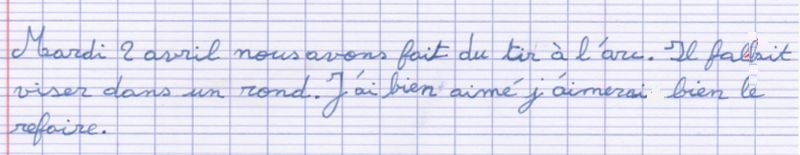 Mardi 2 avril nous avons fait du tir à l'arc. Il fallait
viser dans un rond. J'ai bien aimé j'aimerai bien le
refaire.